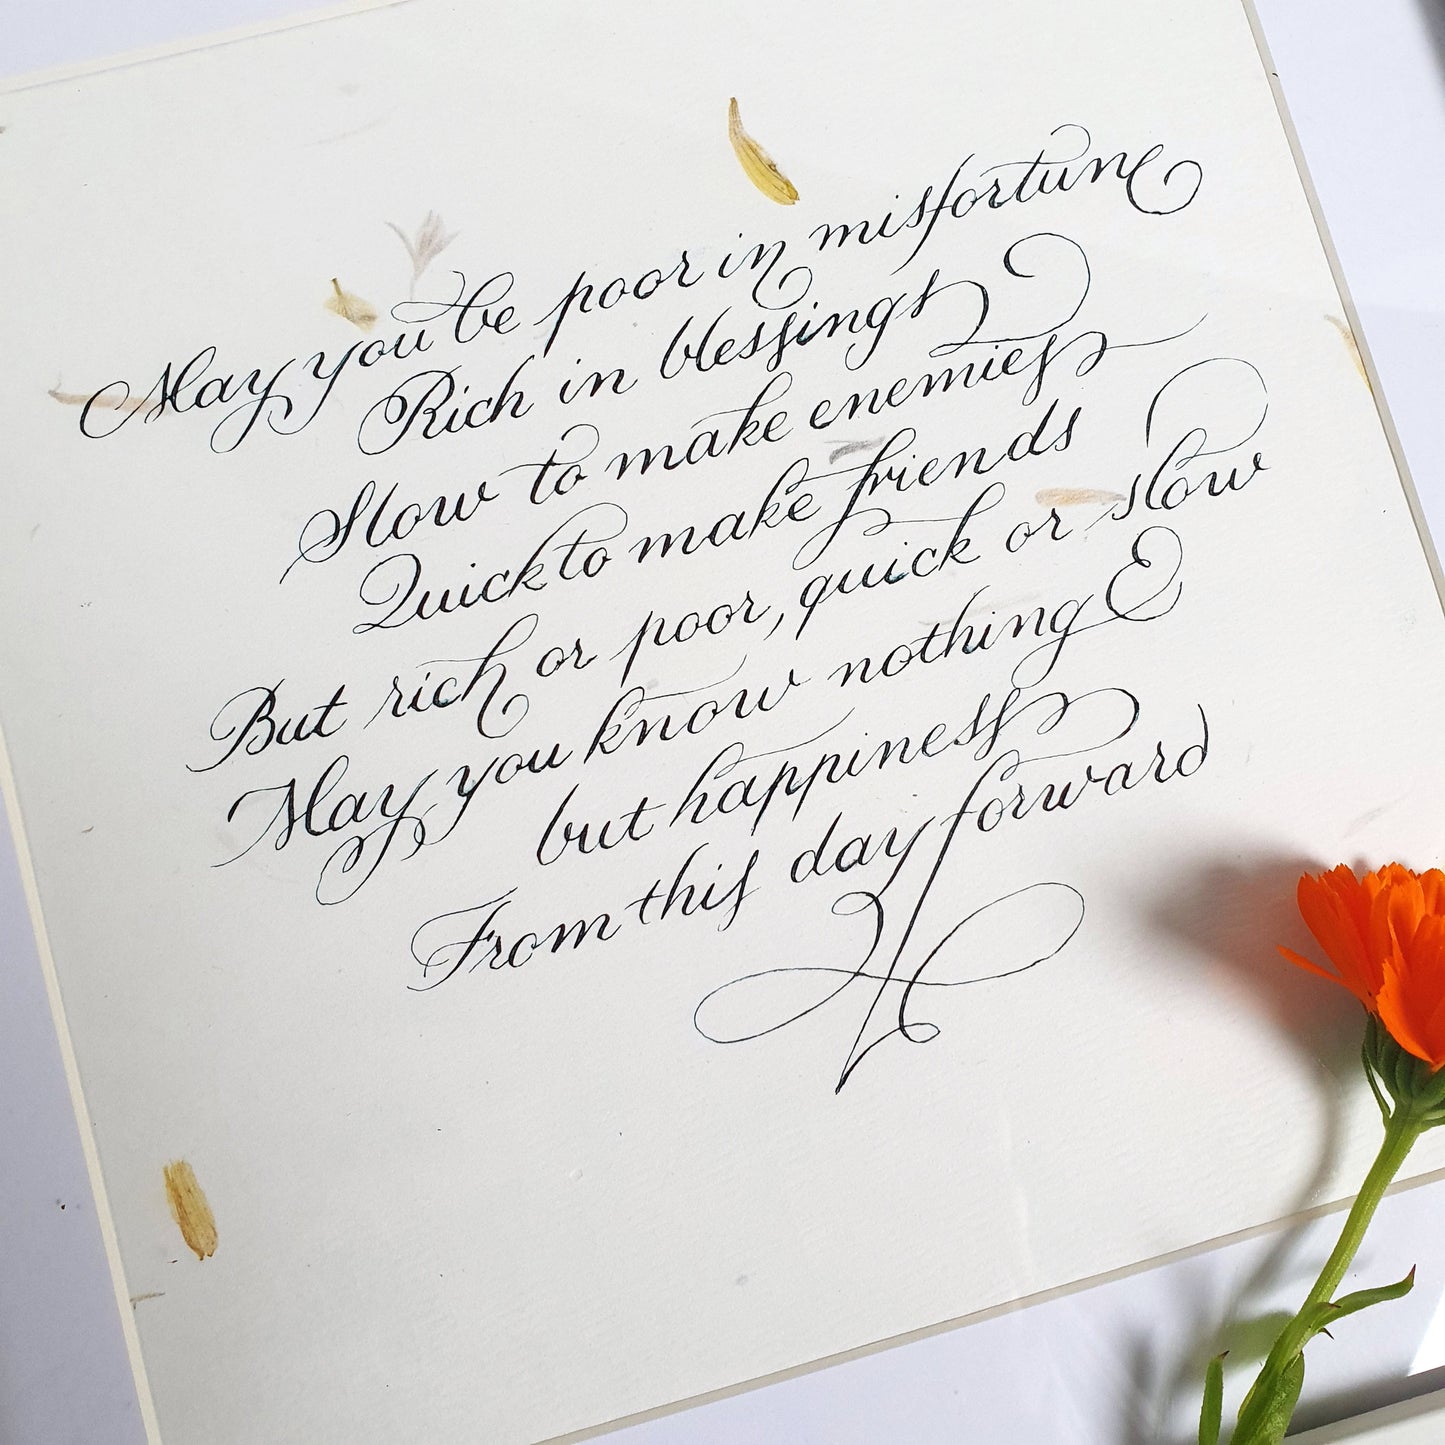 May you be poor in misfortune
Rich in blessings
Slow to make enemies
Quick to make friends
But rich or poor, quick or slow
May you know nothing
but happiness
From this day forward